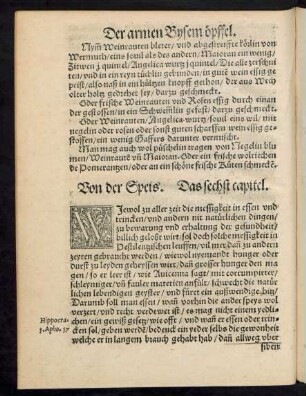 Der armen Bysem öpffel.
Nym̃ Weinrauten bleter/ vnd abgestreiffte köslin von
Wermuth/ eins souil als des andern/ Maioran ein wenig/
Zitwen j quintel/ Angelica wurtz j quintel/ Die alle zerschni
ten/ vnd in ein reyn tüchlin gebunden/ in gute wein essig ge
peist/ also naß in ein bültzen knopff gethon/ der aus Wech
olter holtz gedrehet sey/ dartzu geschmeckt.
Oder frische Weinrauten vnd Rosen essig durch einan
der gestossen/ in ein Schwem̃lin gefast/ dartzu geschmeckt.
Oder Weinrauten/ Angelica wurtz/ souil eins wil/ mit
negelin oder rosen oder sonst guten scharffen wein essig ge
stossen/ ein wenig Gaffers darunter vermischt.
Man mag auch wol püschelin tragen von Negelin blu
men/ Weinraute vñ Maioran. Oder ein frische wolriechen
de Pomerantzen/ oder an ein schöne frische Küten schmeckẽ.
Von der Speis. Das sechst capitel.
WJewol zu aller zeit die messigkeit in essen vnd
trincken/ vnd andern nit natürlichen dingen/
zu bewarung vnd erhaltung der gesundheit/
billich gelobt wirt sol doch solche messigkeit in
Pestilentzischen leuffen/ vil mer/ dañ zu andern
zeyten gebraucht werden/ wiewol nyemandt hunger oder
durst zu leyden geheyssen wirt/ dañ grosser hunger den ma
gen/ so er leer ist/ wie Auicenna sagt/ mit corrumpirter/
schleymiger/ vñ fauler materien anfült/ schwecht die natür
lichen lebendigen geyster/ vnd füret ein auswendige hitz/
Darumb soll man essen/ wañ vorhin die ander speys wol
verzert/ vnd recht verdewet ist/ es mag nicht einem yedli
Hippocra. chen/ ein gewiß gesetz/ wie offt/ vnd wañ er essen oder trin
j. Apho. 17 cken sol/ geben werdẽ/ bedenck ein yeder selbs die gewonheit
welche er in langem brauch gehabt hab/ dañ allweg vber
siben